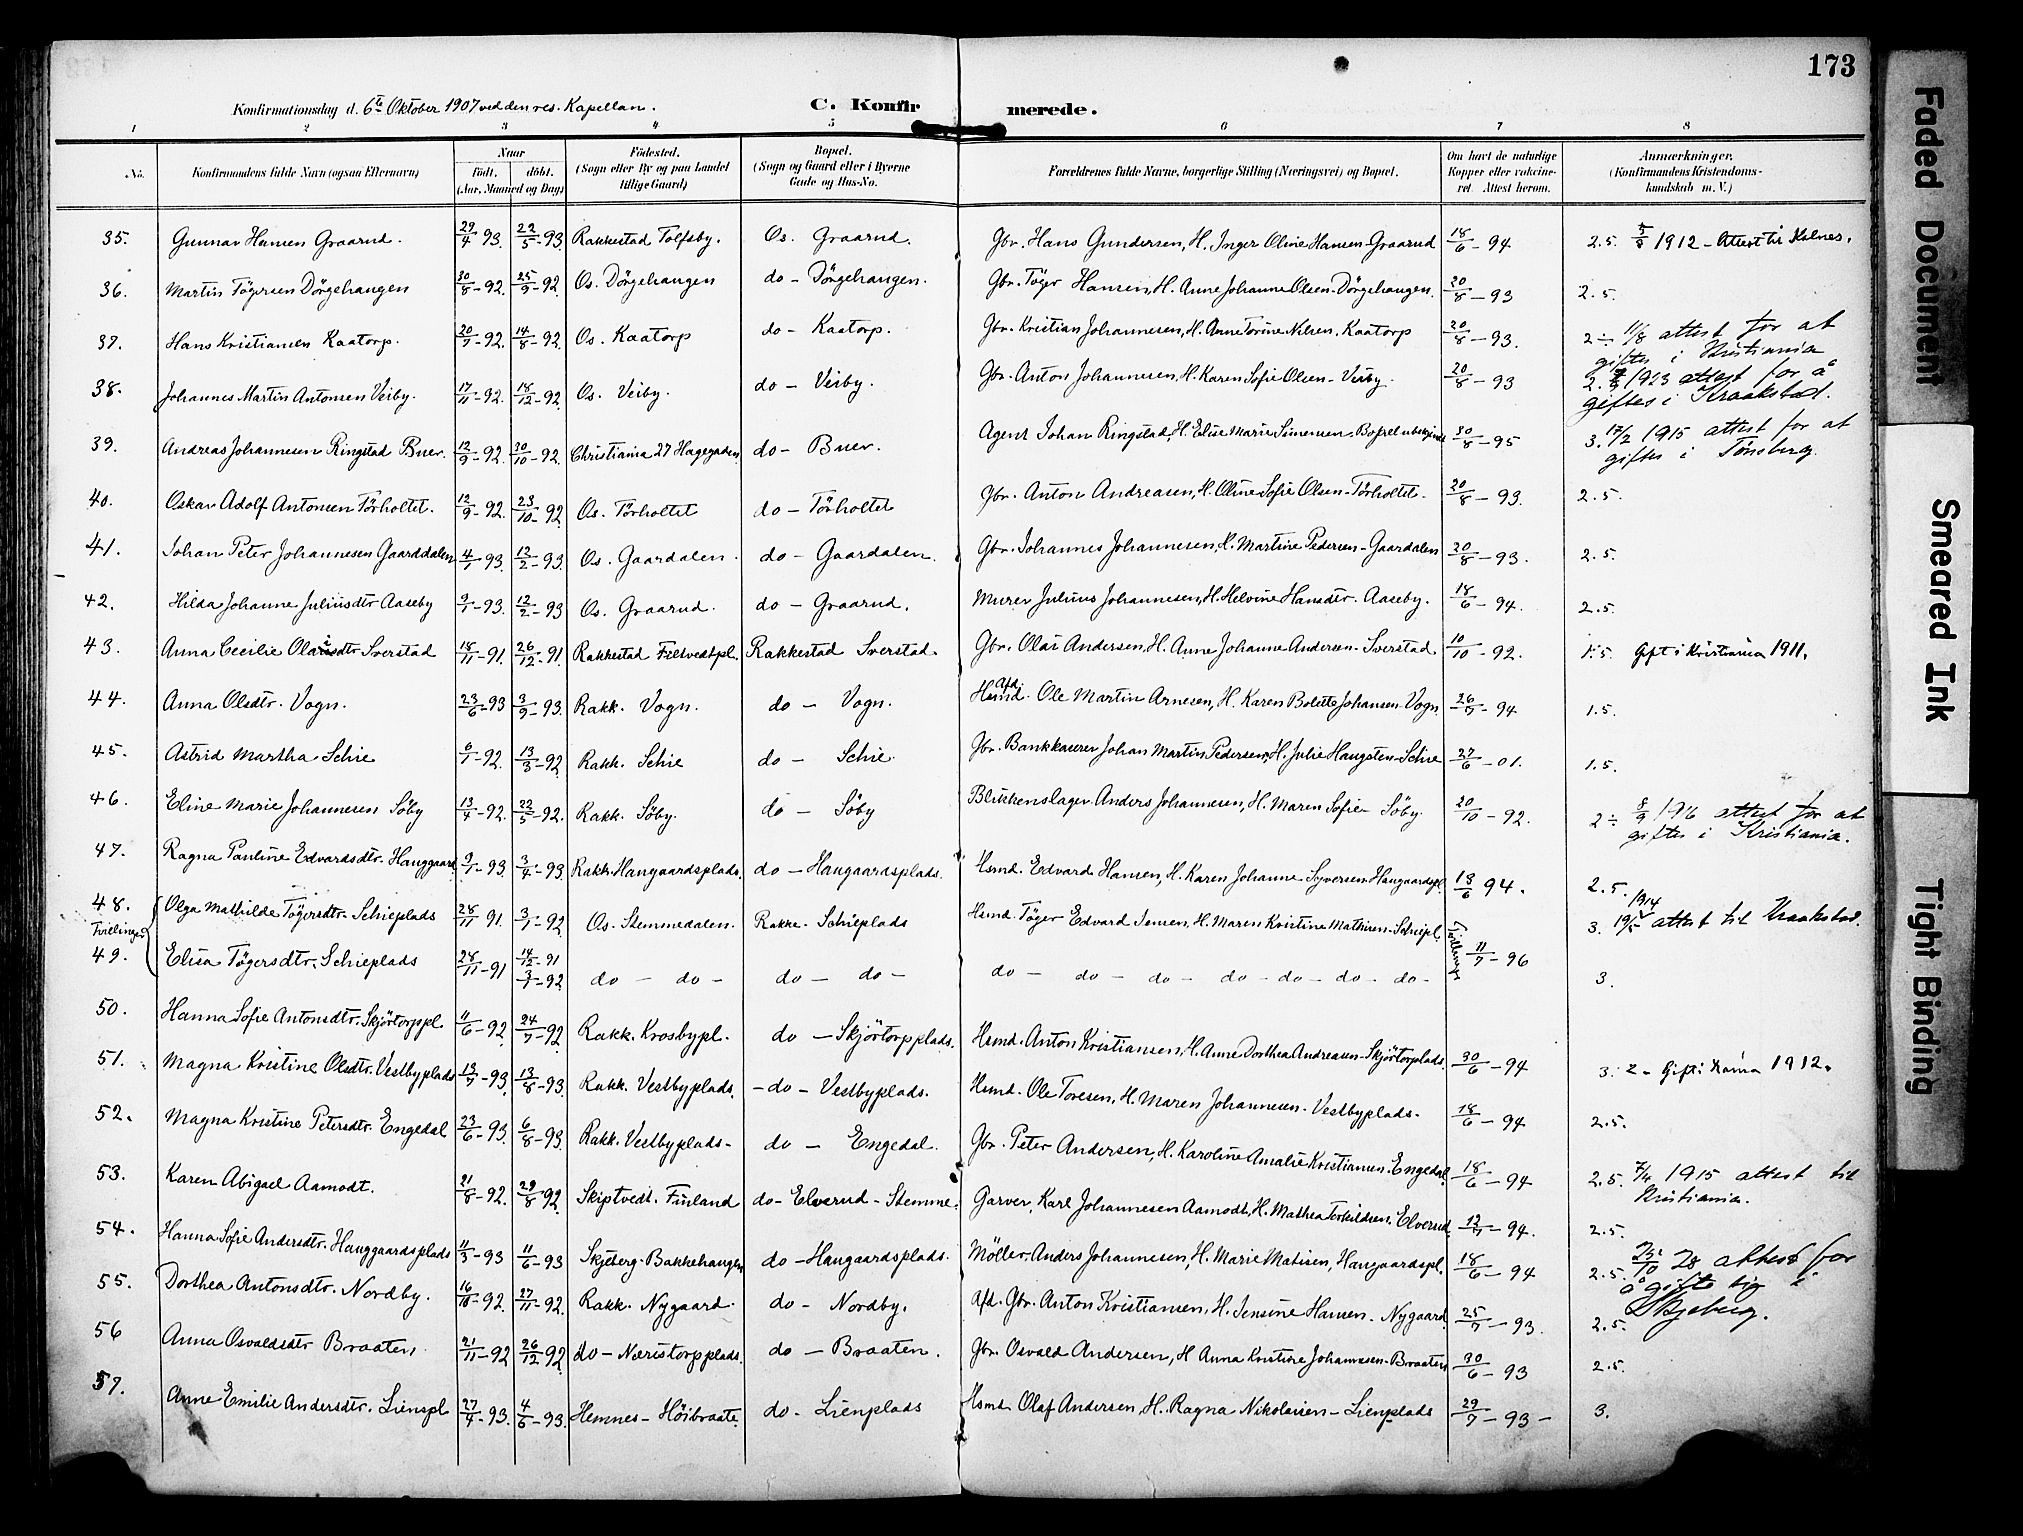 173
Konfirmationsdag d. 6te Oktober 1907 ved den res. Kapellan.
C. Konfirmerede.
1 2 3 4 5 6 7 8
No. Konfirmandens fulde Navn (ogsaa Efternavn) Naar født. døbt. (Aar, Maaned og Dag) Fødested. (Sogn eller By og paa Landet tillige Gaard) Bopæl. (Sogn og Gaard eller i Byerne Gade og Hus-No. Forældrenes fulde Navne, borgerlige Stilling (Næringsvei) og Bopæl. Om havt de naturlige Kopper eller vakcineret. Attest herom. Anmærkninger. (Konfirmandens Kristendomskundskab m. V.)
35. Gunnar Hansen Graarud. 29/4 93. 22/5-93 Rakkestad Tolfsby. Os. Graarud. Gbr. Hans Gundersen, H. Inger Oline Hansen-Graarud 18/6-94 2.5. 5/8 1912 - Attest til Kalnes.
36. Martin Tögersen Dörgehaugen 30/8-92. 25/9-92. Os. Dörgehaugen do - Dörgehaugen. Gbr. Töger Hansen, H. Anne Johanne Olsen-Dörgehaugen. 20/8-93 2.5.
37. Hans Kristiansen Kaatorp. 20/7-92. 14/8-92. Os. Kaatorp do - Kaatorp. Gbr. Kristian Johannesen, H. Anne Torine Nilsen, Kaatorp 20/8-93. 2÷ 11/8 attest for at giftes i Kristiania
38. Johannes Martin Antonsen Veiby. 17/11-92. 18/12-92. Os. Veiby. do - Veiby. Gbr. Anton Johannesen, H. Karen Sofie Olsen-Veiby. 20/8-93 2. 1923 attest for å giftes i Kraakstad.
39. Andreas Johannesen Ringstad Buer. 12/9-92. 30/10-92. Christiania 27 Hagegaden do - Buer. Agent Johan Ringstad, H. Elise Marie Simensen-Bopæl ubekjendt 30/8-95 3. 17/2 1915 attest for at giftes i Tönsberg.
40. Oskar Adolf Antonsen Törholtet. 12/9-92. 23/10-92 Os. Törholtet do - Törholtet Gbr. Anton Andreasen, H. Oline Sofie Olsen-Törholtet. 20/8-93. 2.5.
41. Johan Peter Johannesen Gaarddalen 4/1 93. 12/2-93. Os. Gaardalen. do - Gaardalen. Gbr. Johannes Johannesen, H. Martine Pedersen-Gaardalen 20/8-93. 2.5.
42. Hilda Johanne Juliusdtr Aaseby 9/1-93. 12/2-93 Os. Graarud. do - Graarud. Murer Julius Johannesen, H. Helvine Hansdtr. Aaseby. 18/6-94. 2.5.
43. Anna Cecilie Olaisdtr Sverstad 18/11-91. 26/12-91. Rakkestad Filtvedtpl. Rakkestad Sverstad. Gbr. Olai Andersen, H. Anne Johanne Andersen-Sverstad. 10/10-92. 1.5. Gift i Kristiania 1911.
44. Anna Olsdtr. Vogn. 23/6-93 3/9-93. Rakk. Vogn. do - Vogn. Afd. Hsmd. Ole Martin Arnesen, H. Karen Bolette Johansen-Vogn. 26/7-94 1.5.
45. Astrid Martha Schie 6/1-92. 13/3-92 Rakk. Schie do - Schie Gbr. Bankkaserer Johan Martin Pedersen, H. Julie Haugsten-Schie 27/6-01. 1.5.
46. Eline Marie Johannesen Söby 13/4-92. 22/5-92. Rakk. Söby. do - Söby Blikkenslager Anders Johannesen, H. Maren Sofie Söby. 20/10-92. 2÷ 8/9 1916 attest for at giftes i Kristiania.
47. Ragna Pauline Edvardsdtr. Hauggaard 9/1-93 3/4-93. Rakk. Haugaardsplads. do - Haugaardsplads. Hsmd. Edvard Hansen, H. Karen Johanne Syversen-Haugaardspl. 18/6 94. 2.5.
48. Olga Mathilde Tögersdtr. Schieplads 28/11 91. 3/7-92 Os. Stemmedalen. Rakke. Schieplads Hsmd. Töger Edvard Jensen, H. Maren Kristine Mathisen-Schiepl. 3. 19/5 1914 attest til Kraakstad.
Tvillinger Tvillinger 11/7-96
49. Elisa Tögersdtr. Schieplads 28/11-91 14/12-91 3/7-92 do - do - do - do - do - do - do - do - do - do - do - 3.
50. Hanna Sofie Antonsdtr. Skjörtorppl. 11/6-92 24/7-92 Rakk. Krosbypl. do - Skjörtorpplads. Hsmd. Anton Kristiansen, H. Anne Dorthea Andreasen-Skjörtorplads. 30/6-94
51. Magna Kristine Olsdtr. Vestbyplads 13/7-93. 13/8-93. Rakk. Vestbyplads. - do - Vestbyplads. Hsmd. Ole Toresen, H. Maren Johannesen-Vestbyplads. 18/6-94 3. 2 - Gift i 1912.
52. Magna Kristine Petersdtr. Engedal 23/6-93. 6/8-93. Rakk. Vestbyplads. do - Engedal. Gbr. Peter Andersen, H. Karoline Amalie Kristiansen Engedal 18/6-94 2.5.
53. Karen Abigael Aamodt. 21/8-92. 29/8 92. Skiptvedt. Finland do - Elverud - Stemme. Garver, Karl Johannesen Aamodt, H. Mathea Torkildsen. Elverud. 12/7-94. 2.5. 7/4 1915 attest til Kristiania.
54. Hanna Sofie Andersdtr. Hauggaardsplads 11/3-93 11/6-93 Skjeberg-Bakkehaugen do - Haugaardsplads. Möller Anders Johannesen, H. Marie Matisen, Haugaardspl. 18/6-94 2.5.
55. Dorthea Antonsdtr. Nordby. 16/10-92. 27/11-92. Rakk. Nygaard. do - Nordby. Afd. Gbr. Anton Kristiansen, H. Jensine Hansen. Nygaard. 25/7-93. 2.5. /10 28 attest for å gifte sig i Skjeberg.
56 Anna Osvaldsdtr Braaten. 21/11-92 26/12 92 do - Næristorpplads. do - Braaten. Gbr. Osvald Andersen, H Anna Kristine Johannesen-Braaten 30/6-93 2.5.
57. Anne Emilie Andersdtr. Lienspl 27/4-93. 4/6-93. Hemnes - Höibraate. do - Lienplads Hsmd Olaf Andersen H. Ragna Nikolaisen - Lienplads 29/7-93- 3.
Faded Document
Smeared Ink
Tight Binding